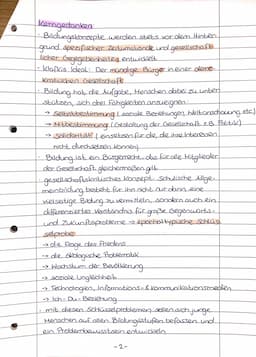 Kerngedanken
· Bildungskonzepte werden stets vor dem Hinter-
grund spezifischer Zeitumstände und gesellschaft-
licher Gegebenheiten entwickelt
· Klafkis Ideal: Der mündige Bürger in einer demo-
kratischen Gesellschaft
· Bildung hat die Aufgabe, Menschen dabei zu unter-
stützen, sich drei Fähigkeiten anzueignen:
→ Selbstbestimmung (soziale Beziehungen, Weltanschauung, etc.)
→ Mitbestimmung (Gestaltung der Gesellschaft, z.B. Politik)
→ Solidarität (einsetzen für die, die ihre Interessen
nicht durchsetzen können)
· Bildung ist ein Bürgerrecht, das für alle Mitglieder
der Gesellschaft gleichermaßen gilt
· gesellschaftskritisches Konzept: schulische Allge-
meinbildung besteht für ihn nicht nur darin, eine
vielseitige Bildung zu vermitteln, sondern auch ein
differenziertes Verständnis für große Gegenwarts-
und Zukunftsprobleme → epochaltypische Schlüs-
selprobleme
→ die Frage des Friedens
→ die ökologische Problematik
→ Wachstum der Bevölkerung
→ soziale Ungleichheit
→ Technologien, Informations- & Kommunikationsmedien
→ Ich-Du-Beziehung
· mit diesen Schlüsselproblemen sollen sich junge
Menschen auf allen Bildungsstufen befassen und
ein Problembewusstsein entwickeln
- 2 -